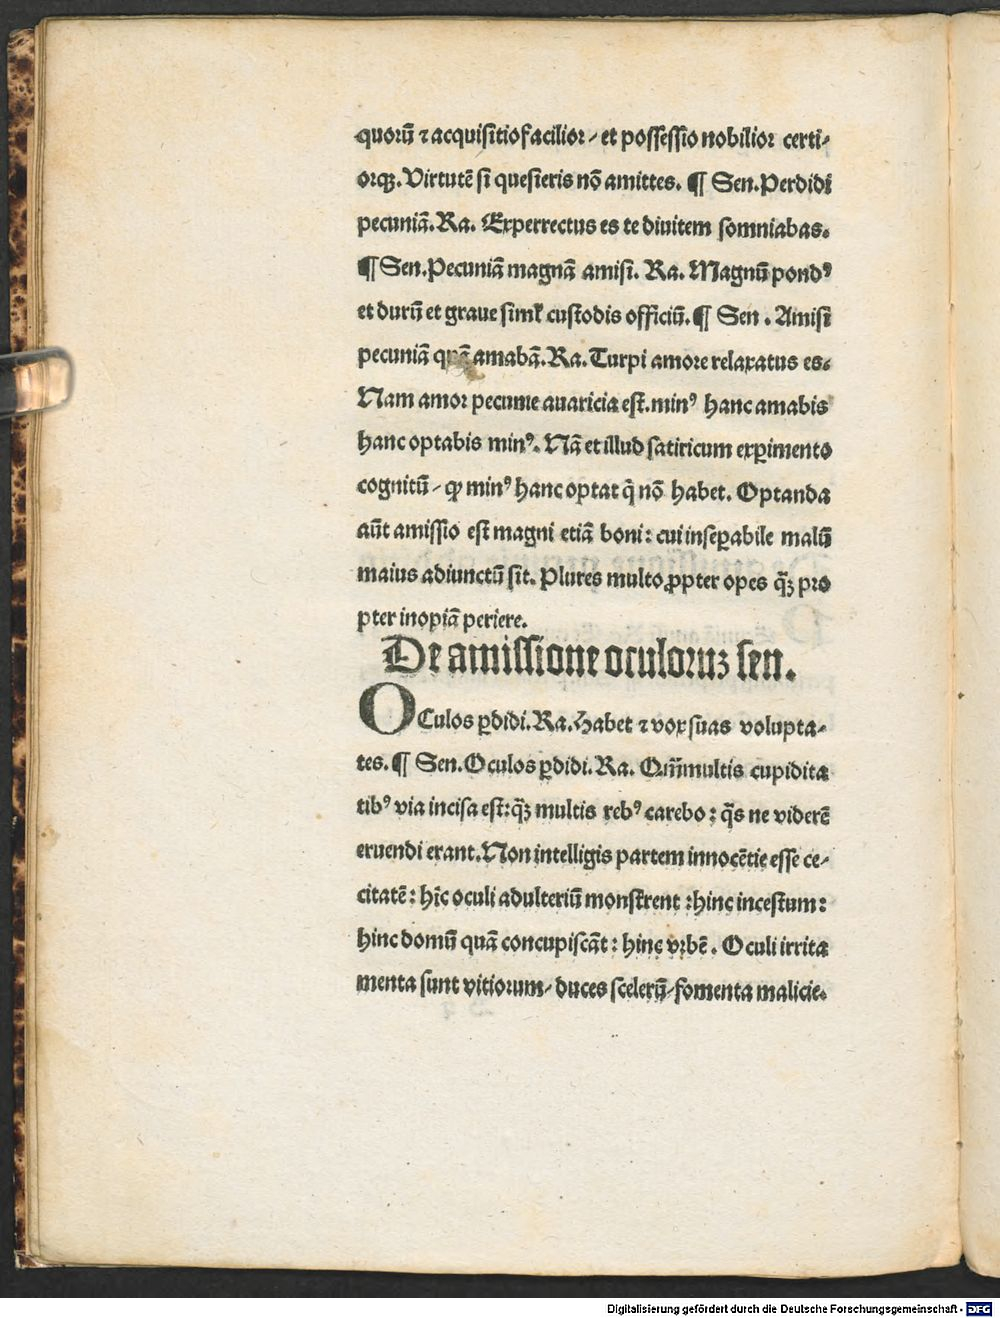 quorū ⁊ acquisitio facilior / et possessio nobilior certi-
orqꝫ. Virtutē si quesieris nō amittes. ¶ Sen. Perdidi
pecuniā. Ra. Experrectus es te diuitem somniabas.
¶ Sen. Pecuniā magnā amisi. Ra. Magnū pondꝰ
et durū et graue simkꝉ custodis officiū. ¶ Sen. Amisi
pecuniā quā amabā. Ra. Turpi amore relaxatus es.
Nam amor pecunie auaricia est. minꝰ hanc amabis
hanc optabis minꝰ. Nā et illud satiricum exꝑimento
cognitū / ꝙ minꝰ hanc optat q̄ nō habet. Optanda
aūt amissio est magni etiā boni: cui inseꝑabile malū
maius adiunctū sit. Plures multo ꝓpter opes q̄ꝫ pro
pter inopiā periere.
De amissione oculoruꝫ sen.
OCulos ꝑdidi. Ra. Habet ⁊ vox suas volupta-
tes. ¶ Sen. Oculos ꝑdidi. Ra. Qm̄ multis cupidita
tibꝰ via incisa est: q̄ꝫ multis rebꝰ carebo: q̄s ne viderē
eruendi erant. Non intelligis partem innocētie esse ce-
citatē: hīc oculi adulteriū monstrent: hinc incestum:
hinc domū quā concupiscāt: hinc vrbē. Oculi irrita
menta sunt vitiorum / duces scelerū / fomenta malicie.
Digitalisierung gefördert durch die Deutsche Forschungsgemeinschaft - DFG